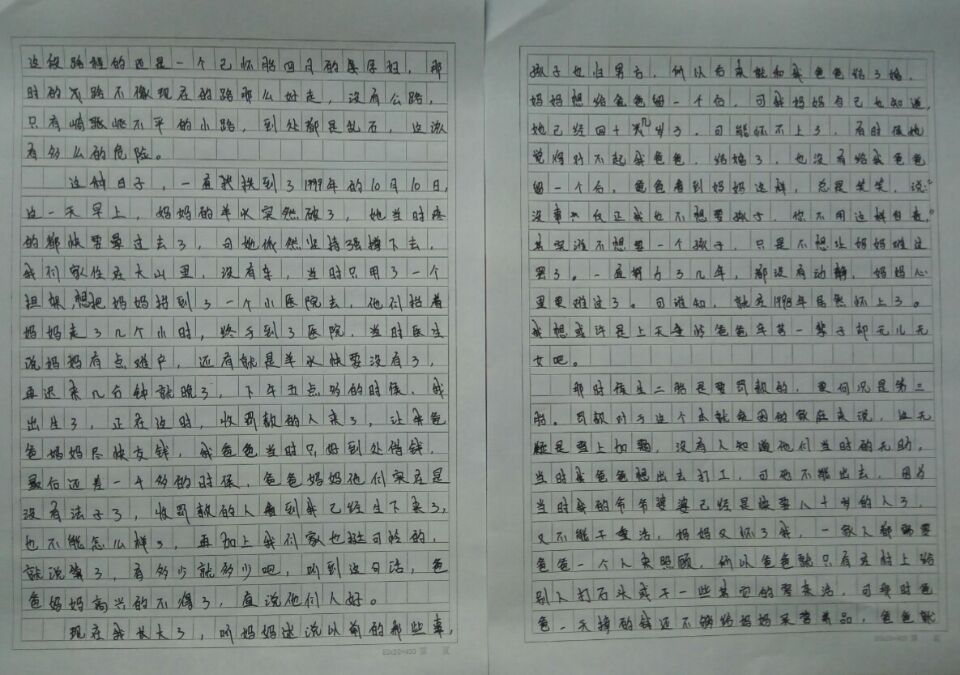 这段路程的还是一个已怀胎四月的集孕妇，那
时的火路不像现在的路那么好走，没有公路，
只有崎岖不平的小路，到处都是乱石，这该
有多么的危险。
这种日子，一直到了1999年的10月10日，
这一天早上，妈妈的羊水突然破了，她当时疼
的都快要晕过去了，可她依然坚持强撑下去，
我们家住在大山里，没有车，当时只用了一个
担架，想把妈妈抬到了一个小医院去，他们抬着
妈妈走了几个小时，终于到了医院，当时医生
说妈妈有点难产，还有就是羊水快要没有了，
再迟来几分钟就晚了，下午五点多的时候，我
出生了，正在这时，收罚款的人来了，让我爸
爸妈妈尽快交钱，我爸爸当时只好到处借钱，
最后还差一千多的时候，爸爸妈妈他们实在是
没有法子了，收罚款的人看到我已经生下来了，
也不能怎么样了，再加上我们家也挺可怜的，
就说算了，有多少就多少吧，听到这句话，爸
爸妈妈高兴的不得了，直说他们人好。
现在我长大了，听妈妈述说以前的那些事，
孩子也归男方，所以后来就和我爸爸结了婚，
妈妈想给爸爸留一个后，可我妈妈自己也知道，
她已经四十几岁了，可能怀不上了，有时候她
觉得对不起我爸爸，结婚了，也没有给我爸爸
留一个后，爸爸看到妈妈这样，总是笑笑，说：
没事，反正我也不想要孩子，你不用这样自责，
其实谁不想要一个孩子，只是不想让妈妈难过
罢了。一直努力了几年，都没有动静，妈妈心
里更难过了。可谁知，就在1998年居然怀上了。
我想或许是上天垂怜爸爸辛苦一辈子却无儿无
女吧。
那时候生二胎是要罚款的，更何况是第三
胎。罚款对于这个本就贫困的家庭来说，这无
疑是雪上加霜，没有人知道他们当时的无助，
当时我爸爸想出去打工，可而不能出去，因为
当时我的爷爷婆婆已经是接要八十岁的人了，
又不能干重活，妈妈又怀了我，一家人都需要
爸爸一个人来照顾，所以爸爸就只有在村上给
别人打石头或干一些其它的零杂活，可那时爸
爸一天挣的钱还不够给妈妈买营养品，爸爸就